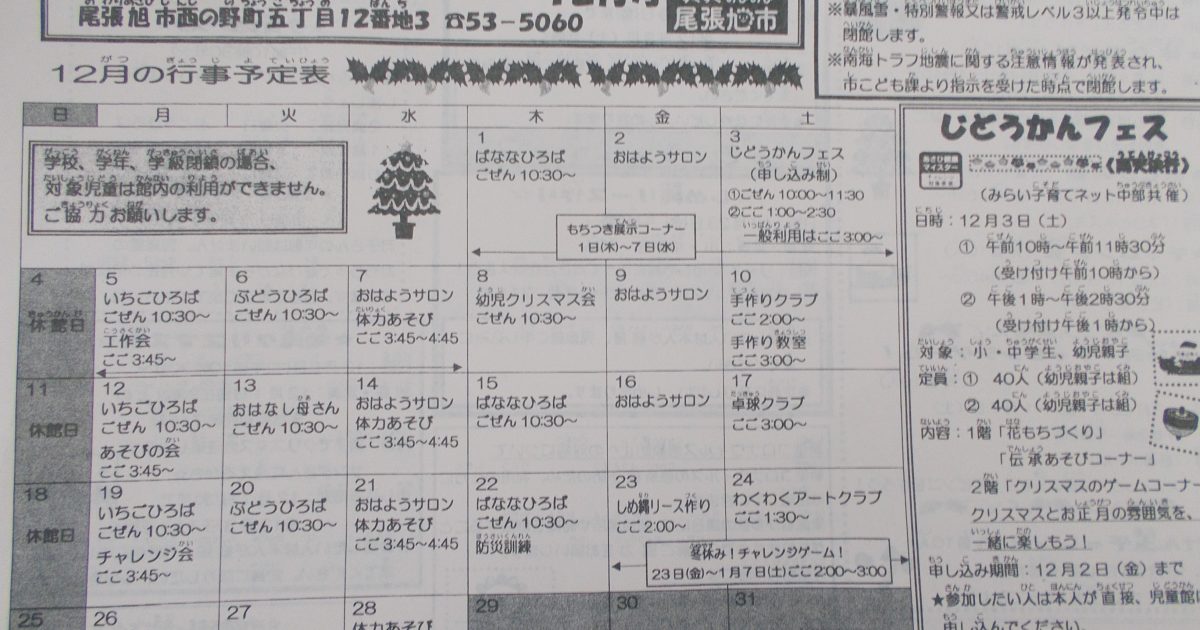 尾張旭市西の野町五丁目12番地3 ☎53-5060
尾張旭市
※暴風雪・特別警報又は警戒レベル3以上発令中は
閉館します。
※南海トラフ地震に関する注意情報が発表され、
市こども課より指示を受けた時点で閉館します。
12月の行事予定表
日 月 火 水 木 金 土
学校、学年、学級閉鎖の場合、
対象児童は館内の利用ができません。
ご協力お願いします。
1
ばななひろば
ごぜん 10:30~
2
おはようサロン
3
じどうかんフェス
(申し込み制)
①ごぜん 10:00~11:30
②ごご 1:00~2:30
一般利用はごご 3:00~
もちつき展示コーナー
1日(木)~7日(水)
4
休館日
5
いちごひろば
ごぜん 10:30~
工作会
ごご 3:45~
6
ぶどうひろば
ごぜん 10:30~
7
おはようサロン
体力あそび
ごご 3:45~4:45
8
幼児クリスマス会
ごぜん 10:30~
9
おはようサロン
10
手作りクラブ
ごご 2:00~
手作り教室
ごご 3:00~
11
休館日
12
いちごひろば
ごぜん 10:30~
あそびの会
ごご 3:45~
13
おはなし母さん
ごぜん 10:30~
14
おはようサロン
体力あそび
ごご 3:45~4:45
15
ばななひろば
ごぜん 10:30~
16
おはようサロン
17
卓球クラブ
ごご 3:00~
18
休館日
19
いちごひろば
ごぜん 10:30~
チャレンジ会
ごご 3:45~
20
ぶどうひろば
ごぜん 10:30~
21
おはようサロン
体力あそび
ごご 3:45~4:45
22
ばななひろば
ごぜん 10:30~
防災訓練
23
しめ縄リース作り
ごご 2:00~
24
わくわくアートクラブ
ごご 1:30~
冬休み!チャレンジゲーム!
23日(金)~1月7日(土)ごご 2:00~3:00
25
26
27
28
体力あそび
29
30
31
じどうかんフェス
(雨天決行)
(みらい子育てネット中部共催)
日時:12月3日(土)
① 午前10時~午前11時30分
(受け付け午前10時から)
② 午後1時~午後2時30分
(受け付け午後1時から)
対象:小・中学生、幼児親子
定員:① 40人(幼児親子は組)
② 40人(幼児親子は組)
内容:1階「花もちづくり」
「伝承あそびコーナー」
2階「クリスマスのゲームコーナー
クリスマスとお正月の雰囲気を、
一緒に楽しもう!
申し込み期間:12月2日(金)まで
★参加したい人は本人が直接、児童館に
申し込んでください。